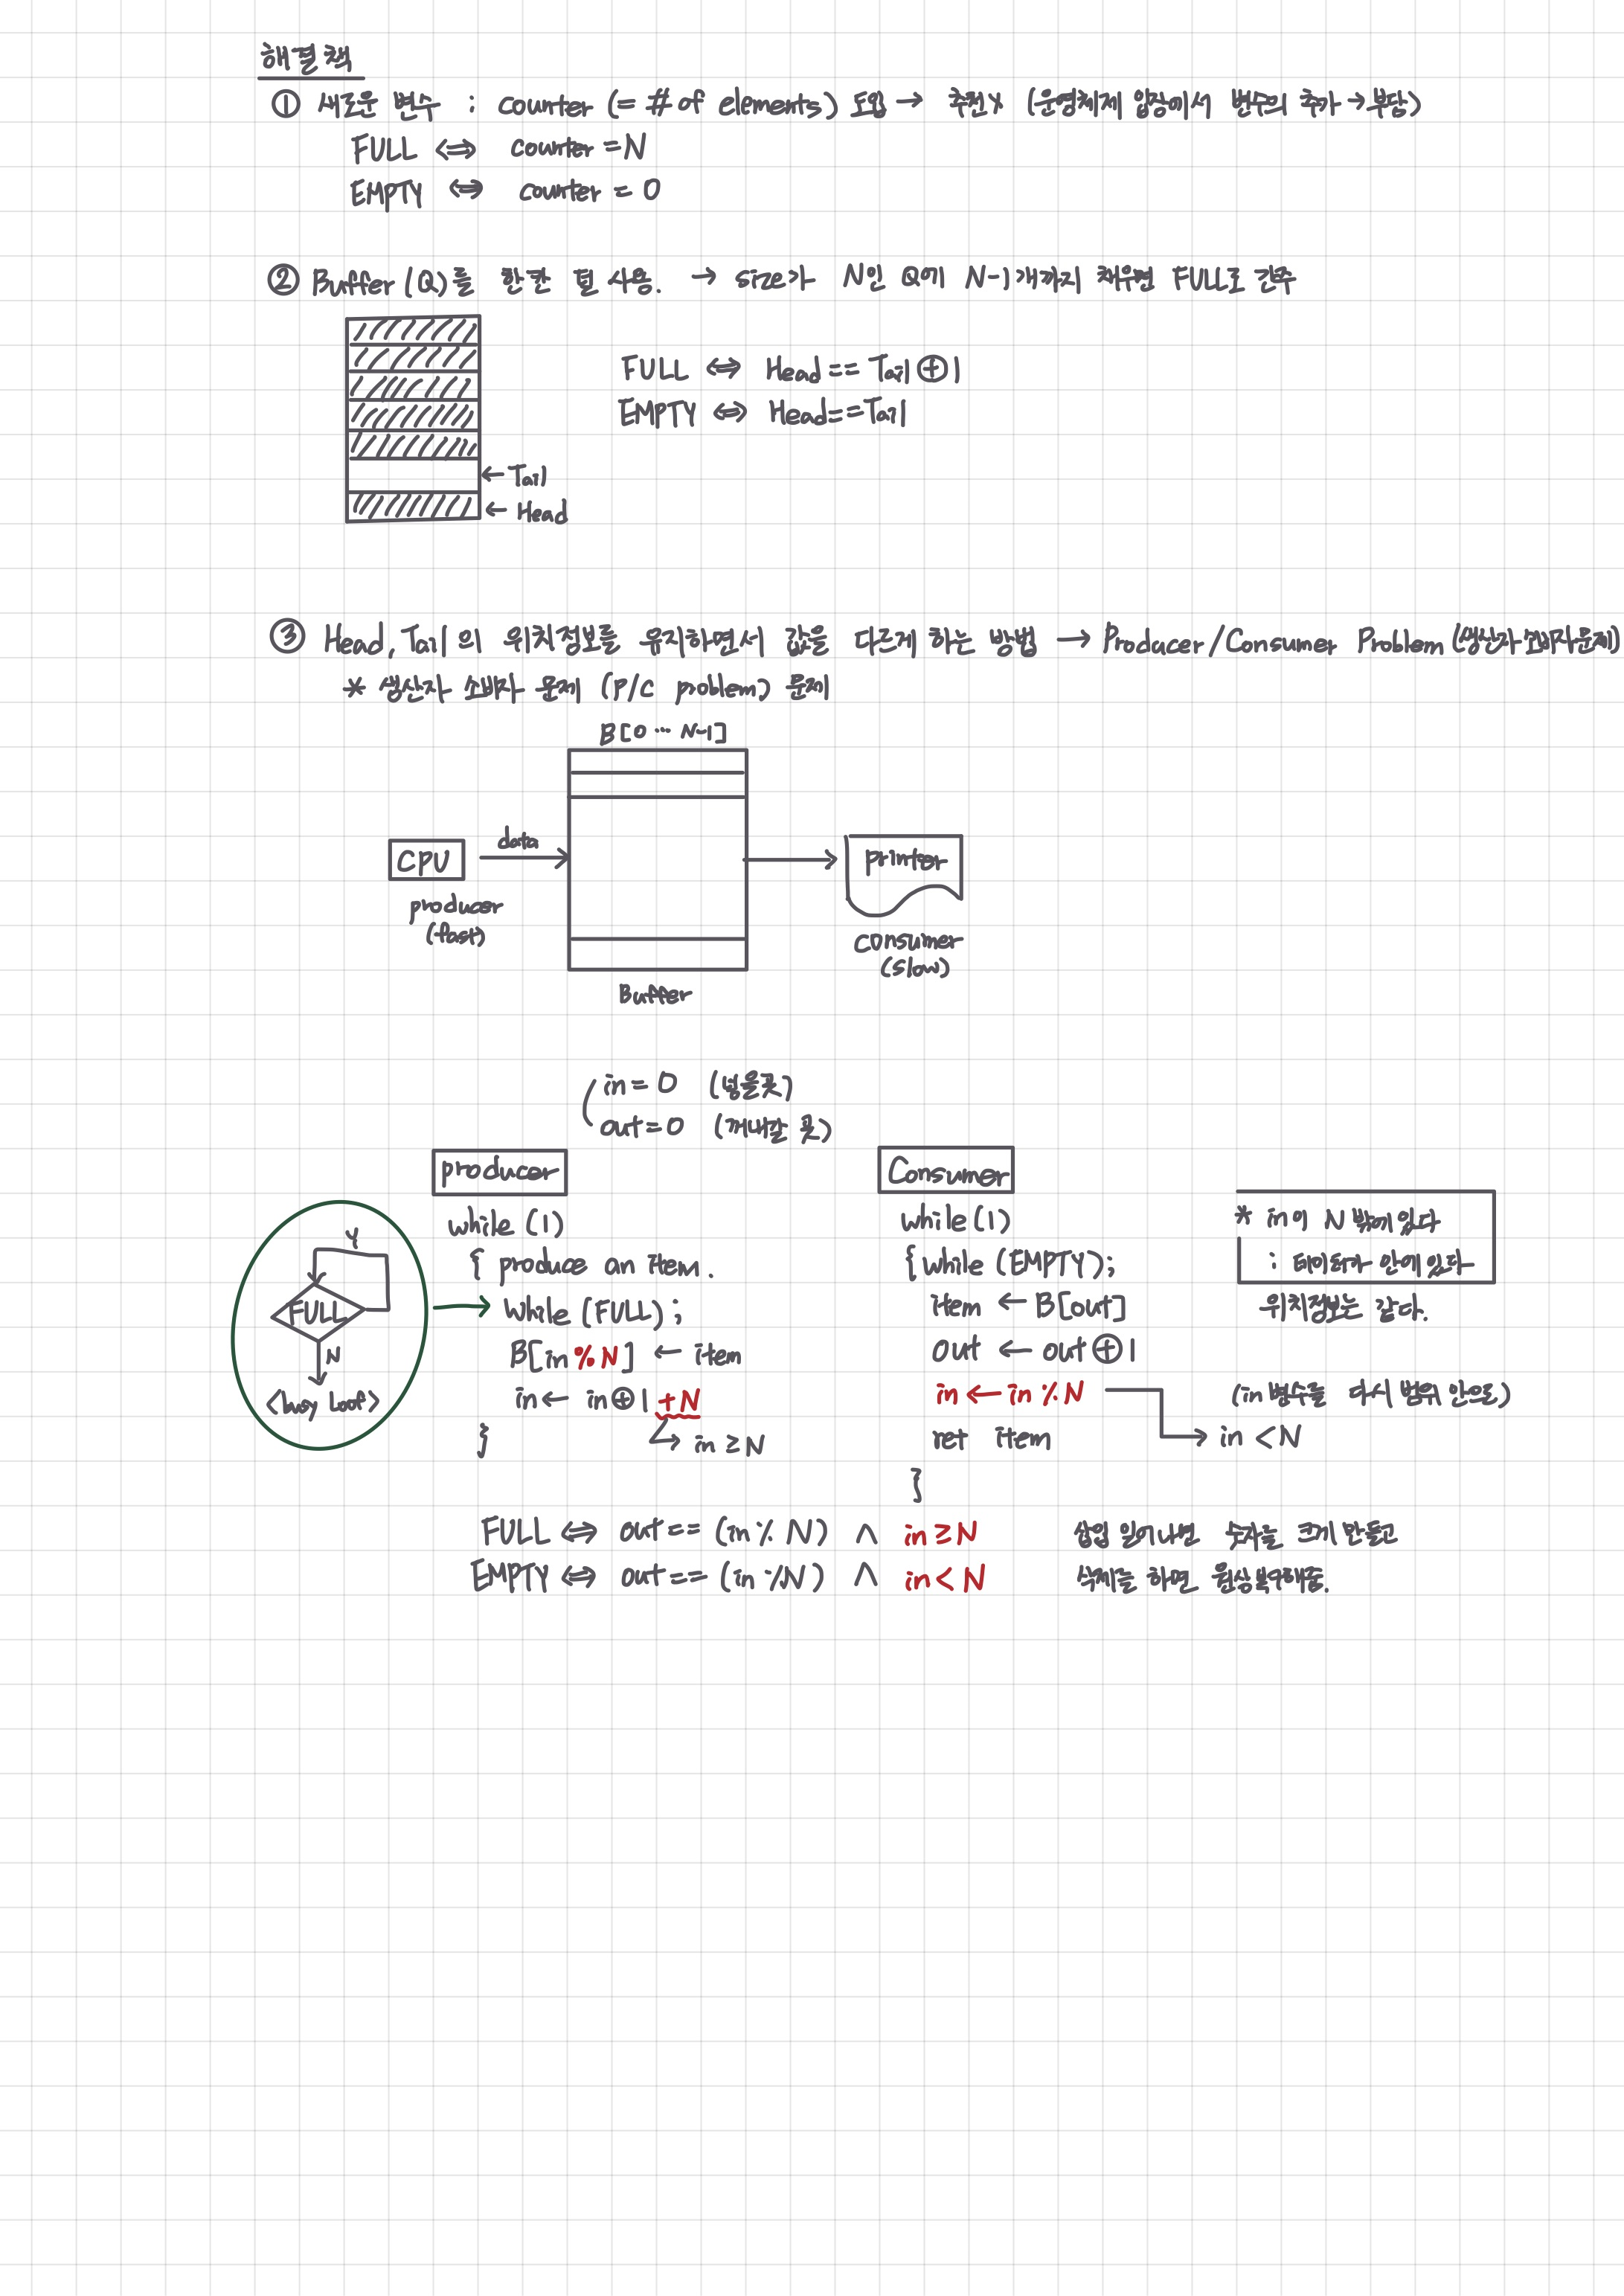 해결책
① 새로운 변수 : counter (= # of elements) 도입 → 추천X (운영체제 입장에서 변수의 추가→부담)
FULL ⇔ counter = N
EMPTY ⇔ counter = 0
② Buffer (Q)를 한칸 덜 사용. → size가 N인 Q에 N-1개까지 채우면 FULL로 간주
FULL ⇔ Head == Tail ⊕ 1
EMPTY ⇔ Head == Tail
← Tail
← Head
③ Head, Tail의 위치정보를 유지하면서 값을 다르게 하는 방법 → Producer/Consumer Problem (생산자소비자문제)
* 생산자 소비자 문제 (P/C problem) 문제
B[0 ··· N-1]
data
CPU
printer
producer
(fast)
consumer
(slow)
Buffer
in = 0 (넣을곳)
out = 0 (꺼내갈 곳)
producer
while (1)
{ produce an item.
while (FULL);
B[in % N] ← item
in ← in ⊕ 1 + N
→ in ≥ N
}
Y
FULL
N
<busy loop>
Consumer
while (1)
{ while (EMPTY);
item ← B[out]
out ← out ⊕ 1
in ← in % N
ret item
}
* in이 N 밖에 있다
: 데이터가 안에 있다
위치정보는 같다.
(in 변수를 다시 범위 안으로)
→ in < N
FULL ⇔ out == (in % N) ∧ in ≥ N 삽입 일어나면 숫자를 크게 만들고
EMPTY ⇔ out == (in % N) ∧ in < N 삭제를 하면 원상복구해줌.